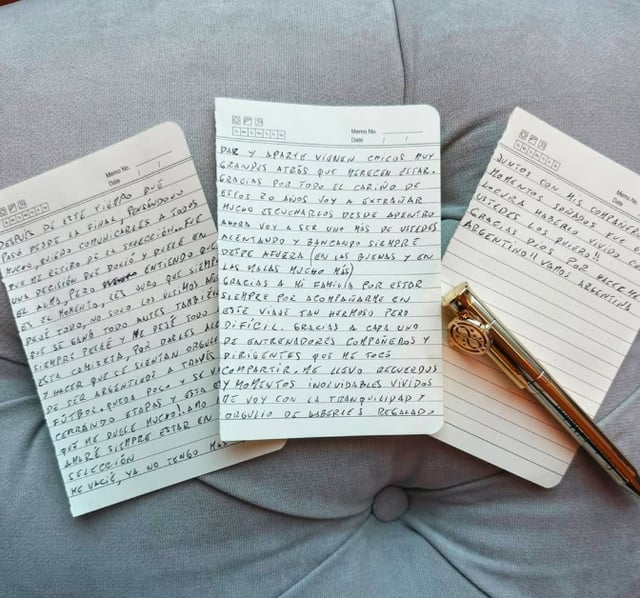 Memo No.
Date / /
DESPUÉS DE ESTE TIEMPO QUE
PASÓ DESDE LA FINAL, PENSÁNDOLO
MUCHO, QUIERO COMUNICARLES A TODOS
QUE ME RETIRO DE LA SELECCIÓN. FUE
UNA DECISIÓN QUE DOLIÓ Y DUELE EN
EL ALMA, PERO ENTIENDO QUE
ES EL MOMENTO, LES JURO QUE SIEMPRE
DEJÉ TODO, NO SOLO LOS ÚLTIMOS AÑOS
QUE SE GANÓ TODO, ANTES TAMBIÉN
SIEMPRE PELEÉ Y ME DEJÉ TODO
ESTA CAMISETA, POR DARLES ALE
Y HACER QUE SE SIENTAN ORGULL
DE SER ARGENTINOS A TRAVÉS
FÚTBOL. QUEDA POCO Y SE V
CERRANDO ETAPAS Y ESTA E
QUE ME DUELE MUCHO!! AMO
AMARÉ SIEMPRE ESTAR EN
SELECCIÓN
ME VACIÉ, YA NO TENGO MÁS
Memo No.
Date / /
DAR Y APARTE VIENEN CHICOS MUY
GRANDES ATRÁS QUE MERECEN ESTAR.
GRACIAS POR TODO EL CARIÑO DE
ESTOS 20 AÑOS VOY A EXTRAÑAR
MUCHO ESCUCHARLOS DESDE ADENTRO
AHORA VOY A SER UNO MÁS DE USTEDES
ALENTANDO Y BANCANDO SIEMPRE
DESDE AFUERA (EN LAS BUENAS Y EN
LAS MALAS MUCHO MÁS)
GRACIAS A MI FAMILIA POR ESTAR
SIEMPRE POR ACOMPAÑARME EN
ESTE VIAJE TAN HERMOSO PERO
DIFÍCIL. GRACIAS A CADA UNO
DE ENTRENADORES COMPAÑEROS Y
DIRIGENTES QUE ME TOCÓ
COMPARTIR. ME LLEVO RECUERDOS
Y MOMENTOS INOLVIDABLES VIVIDOS
ME VOY CON LA TRANQUILIDAD Y
ORGULLO DE HABERLES REGALADO
Memo No.
Date
JUNTOS CON MIS COMPAÑERO
MOMENTOS SOÑADOS FUE
LOCURA HABERLO VIVIDO CO
USTEDES LOS QUIERO!!
GRACIAS DIOS POR HACERME
ARGENTINO!! VAMOS ARGENTINA